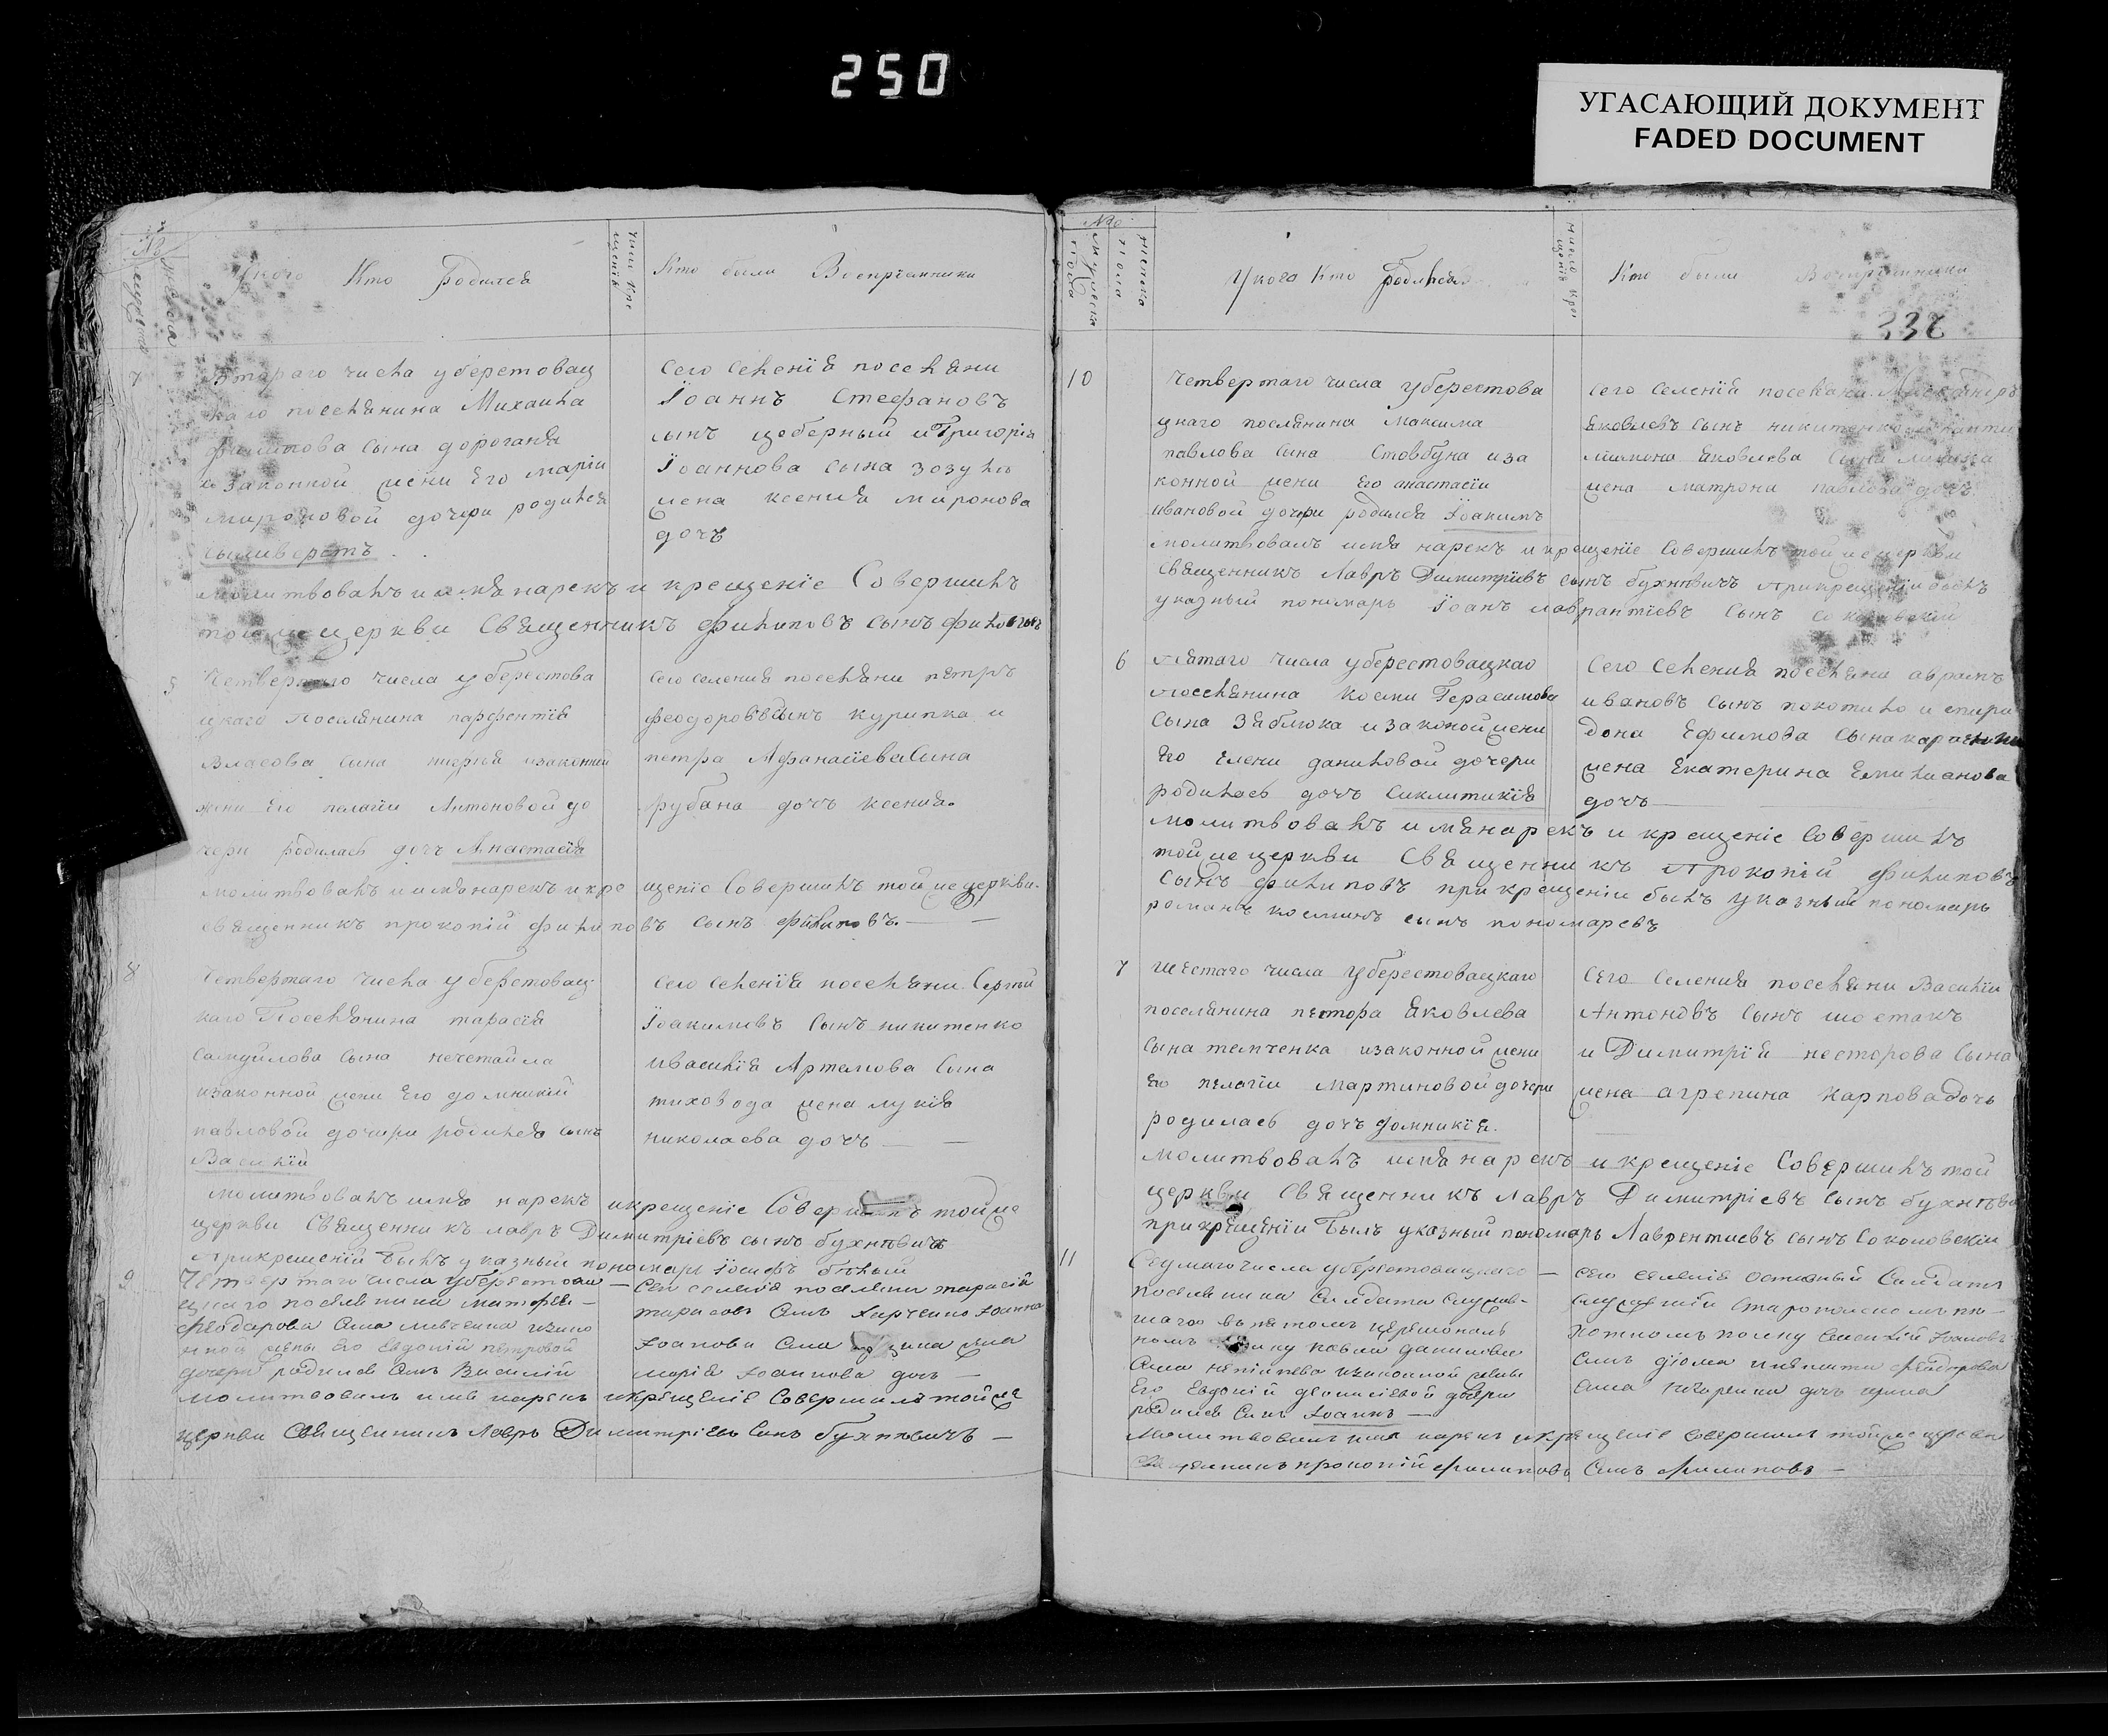 250
УГАСАЮЩИЙ ДОКУМЕНТ
FADED DOCUMENT
№
У кого Кто Родился
Число кре
щенія
Кто были Воспріемники
7
Втараго числа уберестовац
каго поселянина Михаила
филипова сына дороганя
и законной жени Его маріи
мироновой дочери родился
сыливерстъ
сего селенія поселяни
Їоаннъ Стефановъ
сынъ цеберный и Григорія
Їоаннова сына зозули
жена ксенія миронова
дочъ
молитвовалъ и имя нарекъ и крещеніе Совершилъ
тойже церкви Священникъ филиповъ сынъ филиповъ
5
Четвертаго числа у берестова
цкаго Поселянина парфентія
Власова сына изаконній
жени Его палагіи Антоновой до
чери родилась дочъ Анастасія
сего селения поселяни петръ
феодоровъ сынъ курипка и
петра Афанасіева Сина
рубана дочъ ксения.
молитвовалъ и имя нарекъ и кре щеніе Совершилъ тойже церкви.
священникъ прокопій филиповъ сынъ филиповъ. —
8
Четвертаго числа уберстовац
каго Поселянина тарасія
Самуйлова сына нечетайла
изаконной жени Его домникій
павловой дочири родился сынъ
Василій
сего селенія поселяни Сергій
Їоакимовъ Сынъ никитенко
ивасилія Артемова Сина
тиховода жена лукія
николаева дочъ — —
молитвовалъ имя нарекъ икрещеніе Совершилъ тойже
церкви Священникъ лавръ Димитріевъ сынъ бухнѣвичъ
Прикрещеній былъ указный пономарь Їосифъ бѣлый
9
Четвертаго числа уберестовац —
цкаго поселянина матфея —
феодарова Сина левченка изако
нной жены Его Евдокій петровой
дочери родился Синъ Василій
Сего селенія поселяни тарасій
тарасовъ Синъ Харченко Іоанна
Іоанова Сина
марія Іоаннова дочъ —
молитвовалъ имя нарекъ икрещеніе Совершилъ тойже
церкви Священникъ Лавръ Димитріевъ Синъ бухневичъ —
№
мужеска
пола
женска
пола
У кого Кто Родился
число кре
щенія
Кто были Воспріемники
332
10
Четвертаго числа уберестова
цкаго поселянина максима
павлова сина Стовбуна иза
конной жени Его анастасіи
ивановой дочери родился Їоакимъ
сего селенія поселяни
Яковлевъ Сынъ никитенко
Яковлева Сына
жена матрони павлова дочъ
молитвовалъ имя нарекъ и крещеніе Совершилъ той же церкви
Священникъ Лавръ Димитріевъ сынъ бухнѣвичъ прикрещеніи былъ
указный пономарь Їоанъ лаврантіевъ Сынъ соколовскій
6
пятаго числа уберестовацкао
поселянина космы Герасимова
Сына Зяблюка и законой жени
Его Елени даниловой дочери
родилась дочъ Сиклитикїя
Сего Селения поселяни аврамъ
ивановъ Сынъ покотило и спири
дона Ефимова Сына
жена Екатерина Емилианова
дочъ
молитвовалъ имя нарекъ и крещеніе Совершилъ
тойже церкви Священникъ Прокопій филиповъ
Сынъ филиповъ прикрещеніи былъ указный пономарь
романъ косминъ сынъ пономаревъ
7
шестаго числа уберестовацкаго
поселянина нестора Яковлева
Сына темченка изаконной жени
Его пелагіи Мартиновой дочери
родилась дочъ домникїя.
Сего Селения поселяни Василіи
Антоновъ Сынъ шостакъ
и Димитрїй несторова Сына
жена агрепина Карпова дочь
молитвовалъ имя нарекъ и крещеніе Совершилъ той
церкви Священникъ Лавръ Димитріевъ Сынъ бухнѣви
прикрещеніи былъ указный пономарь Лаврентиевъ сынъ Соколовскіи
11
Седмаго числа уберестовацкаго —
поселянина Салдата Служив-
шаго
полку павла данилова
Сина изаконной жены
Его Евдокій дочери
родился Синъ Іоаннъ —
сего селенія Салдатъ
служащій Старооскольскомъ пе-
хотномъ полку Іоановъ
Синъ дюма феодорова
Сина дочъ ирина
Молитвовалъ имя нарекъ икрещеніе Совершилъ тойже церкви
Священникъ прокопій филиповъ Синъ Филиповъ —